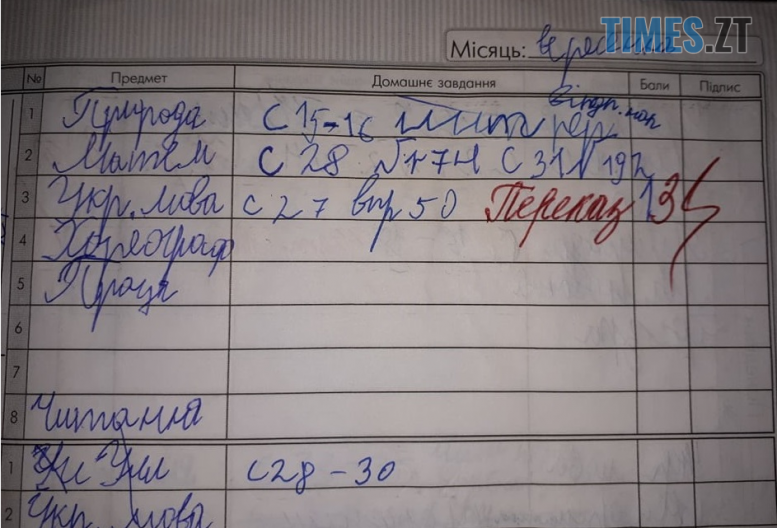 TIMES.ZT
Місяць: вересень
№ Предмет Домашнє завдання Бали Підпис
1 Природа с 15-16
2 Матем с 28 с 31
3 Укр. мова с 27 впр 50 Переказ 13
4 Хореограф
5 Праця
6
7
8 Читання
1 с 28 - 30
2 Укр. мова